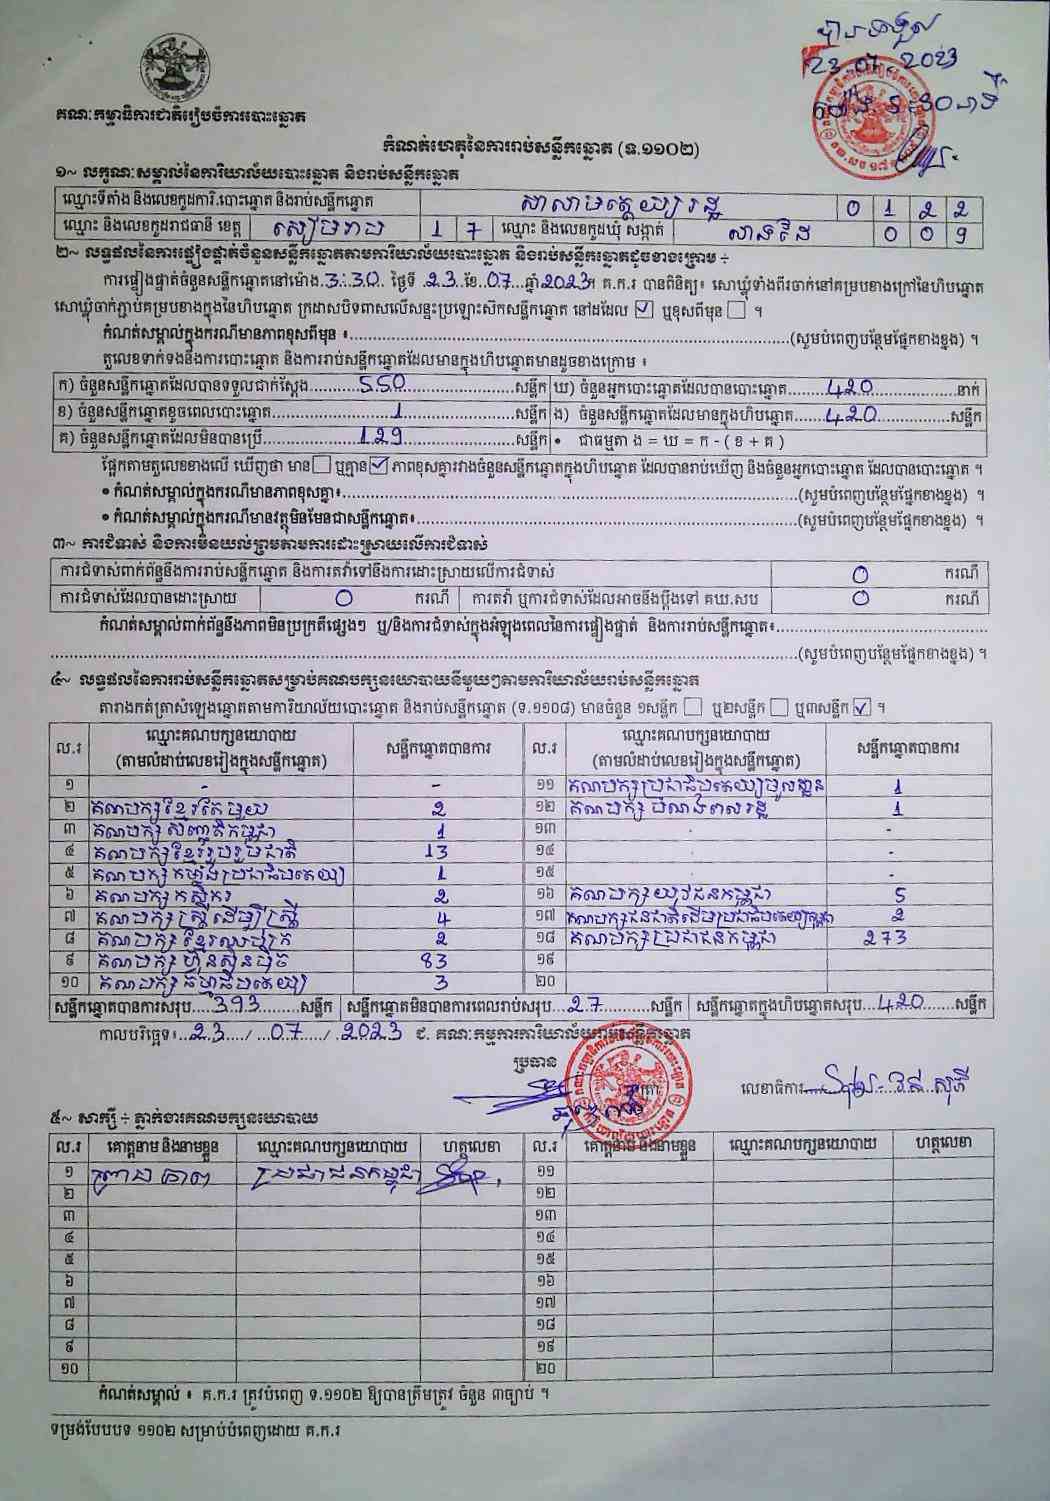 បានទទួល
23.07.2023
ម៉ោង 5:30នាទី
គណៈកម្មាធិការជាតិរៀបចំការបោះឆ្នោត
កំណត់ហេតុនៃការរាប់សន្លឹកឆ្នោត (ទ.១១០២)
១~ លក្ខណៈសម្គាល់នៃការិយាល័យបោះឆ្នោត និងរាប់សន្លឹកឆ្នោត
ឈ្មោះទីតាំង និងលេខកូដការិ.បោះឆ្នោត និងរាប់សន្លឹកឆ្នោត សាលាមត្តេយ្យរដ្ឋ 0 1 2 2
ឈ្មោះ និងលេខកូដរាជធានី ខេត្ត សៀមរាប 1 7 ឈ្មោះ និងលេខកូដឃុំ សង្កាត់ សាងវើដៃ 0 0 9
២~ លទ្ធផលនៃការផ្ទៀងផ្ទាត់ចំនួនសន្លឹកឆ្នោតតាមការិយាល័យបោះឆ្នោត និងរាប់សន្លឹកឆ្នោតដូចខាងក្រោម ÷
ការផ្ទៀងផ្ទាត់ចំនួនសន្លឹកឆ្នោតនៅម៉ោង 3:30 ថ្ងៃទី 23 ខែ 07 ឆ្នាំ 2023។ គ.ក.រ បានពិនិត្យ៖ សោឃ្លុំទាំងពីរចាក់នៅគម្របខាងក្រៅនៃហិបឆ្នោត
សោឃ្លុំចាក់ភ្ជាប់គម្របខាងក្នុងនៃហិបឆ្នោត ក្រដាសបិទពាសលើសន្ទះប្រឡោះសិកសន្លឹកឆ្នោត នៅដដែល ☑ ឬខុសពីមុន ☐ ។
កំណត់សម្គាល់ក្នុងករណីមានភាពខុសពីមុន ៖ (សូមបំពេញបន្ថែមផ្នែកខាងខ្នង) ។
តួលេខទាក់ទងនឹងការបោះឆ្នោត និងការរាប់សន្លឹកឆ្នោតដែលមានក្នុងហិបឆ្នោតមានដូចខាងក្រោម ៖
ក) ចំនួនសន្លឹកឆ្នោតដែលបានទទួលជាក់ស្តែង 550 សន្លឹក ឃ) ចំនួនអ្នកបោះឆ្នោតដែលបានបោះឆ្នោត 420 នាក់
ខ) ចំនួនសន្លឹកឆ្នោតខូចពេលបោះឆ្នោត 1 សន្លឹក ង) ចំនួនសន្លឹកឆ្នោតដែលមានក្នុងហិបឆ្នោត 420 សន្លឹក
គ) ចំនួនសន្លឹកឆ្នោតដែលមិនបានប្រើ 129 សន្លឹក • ជាធម្មតា ង = ឃ = ក - ( ខ + គ )
ផ្អែកតាមតួលេខខាងលើ ឃើញថា មាន ☐ ឬគ្មាន ☑ ភាពខុសគ្នារវាងចំនួនសន្លឹកឆ្នោតក្នុងហិបឆ្នោត ដែលបានរាប់ឃើញ និងចំនួនអ្នកបោះឆ្នោត ដែលបានបោះឆ្នោត ។
• កំណត់សម្គាល់ក្នុងករណីមានភាពខុសគ្នា៖ (សូមបំពេញបន្ថែមផ្នែកខាងខ្នង) ។
• កំណត់សម្គាល់ក្នុងករណីមានវត្ថុមិនមែនជាសន្លឹកឆ្នោត៖ (សូមបំពេញបន្ថែមផ្នែកខាងខ្នង) ។
៣~ ការជំទាស់ និងការមិនយល់ព្រមតាមការដោះស្រាយលើការជំទាស់
ការជំទាស់ពាក់ព័ន្ធនឹងការរាប់សន្លឹកឆ្នោត និងការតវ៉ាទៅនឹងការដោះស្រាយលើការជំទាស់ 0 ករណី
ការជំទាស់ដែលបានដោះស្រាយ 0 ករណី ការតវ៉ា ឬការជំទាស់ដែលអាចនឹងប្តឹងទៅ គឃ.សប 0 ករណី
កំណត់សម្គាល់ពាក់ព័ន្ធនឹងភាពមិនប្រក្រតីផ្សេងៗ ឬ/និងការជំទាស់ក្នុងអំឡុងពេលនៃការផ្ទៀងផ្ទាត់ និងការរាប់សន្លឹកឆ្នោត៖
(សូមបំពេញបន្ថែមផ្នែកខាងខ្នង) ។
៤~ លទ្ធផលនៃការរាប់សន្លឹកឆ្នោតសម្រាប់គណបក្សនយោបាយនីមួយៗតាមការិយាល័យរាប់សន្លឹកឆ្នោត
តារាងកត់ត្រាសំឡេងឆ្នោតតាមការិយាល័យបោះឆ្នោត និងរាប់សន្លឹកឆ្នោត (ទ.១១០៨) មានចំនួន ១សន្លឹក ☐ ឬ២សន្លឹក ☐ ឬ៣សន្លឹក ☑ ។
ល.រ ឈ្មោះគណបក្សនយោបាយ (តាមលំដាប់លេខរៀងក្នុងសន្លឹកឆ្នោត) សន្លឹកឆ្នោតបានការ ល.រ ឈ្មោះគណបក្សនយោបាយ (តាមលំដាប់លេខរៀងក្នុងសន្លឹកឆ្នោត) សន្លឹកឆ្នោតបានការ
១ - - ១១ គណបក្សប្រជាធិបតេយ្យមូលដ្ឋាន 1
២ គណបក្សខ្មែរតែមួយ 2 ១២ គណបក្ស បំណងពលរដ្ឋ 1
៣ គណបក្ស សញ្ជាតិកម្ពុជា 1 ១៣ -
៤ គណបក្សខ្មែររួបរួមជាតិ 13 ១៤ -
៥ គណបក្សកម្លាំងប្រជាធិបតេយ្យ 1 ១៥ -
៦ គណបក្សកសិករ 2 ១៦ គណបក្សយុវជនកម្ពុជា 5
៧ គណបក្សស្ត្រីដើម្បីស្ត្រី 4 ១៧ គណបក្សជនជាតិដើមប្រជាធិបតេយ្យកម្ពុជា 2
៨ គណបក្សខ្មែរឈប់ក្រ 2 ១៨ គណបក្សប្រជាជនកម្ពុជា 273
៩ គណបក្សហ្វ៊ុនស៊ិនប៉ិច 83 ១៩
១០ គណបក្សធម្មាធិបតេយ្យ 3 ២០
សន្លឹកឆ្នោតបានការសរុប 393 សន្លឹក សន្លឹកឆ្នោតមិនបានការពេលរាប់សរុប 27 សន្លឹក សន្លឹកឆ្នោតក្នុងហិបឆ្នោតសរុប 420 សន្លឹក
កាលបរិច្ឆេទ៖ 23 / 07 / 2023 ជ. គណៈកម្មការការិយាល័យរាប់សន្លឹកឆ្នោត
ប្រធាន
លេខាធិការ
៥~ សាក្សី ÷ ភ្នាក់ងារគណបក្សនយោបាយ
ល.រ គោត្តនាម និងនាមខ្លួន ឈ្មោះគណបក្សនយោបាយ ហត្ថលេខា ល.រ គោត្តនាម និងនាមខ្លួន ឈ្មោះគណបក្សនយោបាយ ហត្ថលេខា
១ ប្រជាជនកម្ពុជា ១១
២ ១២
៣ ១៣
៤ ១៤
៥ ១៥
៦ ១៦
៧ ១៧
៨ ១៨
៩ ១៩
១០ ២០
កំណត់សម្គាល់ ៖ គ.ក.រ ត្រូវបំពេញ ទ.១១០២ ឱ្យបានត្រឹមត្រូវ ចំនួន ៣ច្បាប់ ។
ទម្រង់បែបបទ ១១០២ សម្រាប់បំពេញដោយ គ.ក.រ